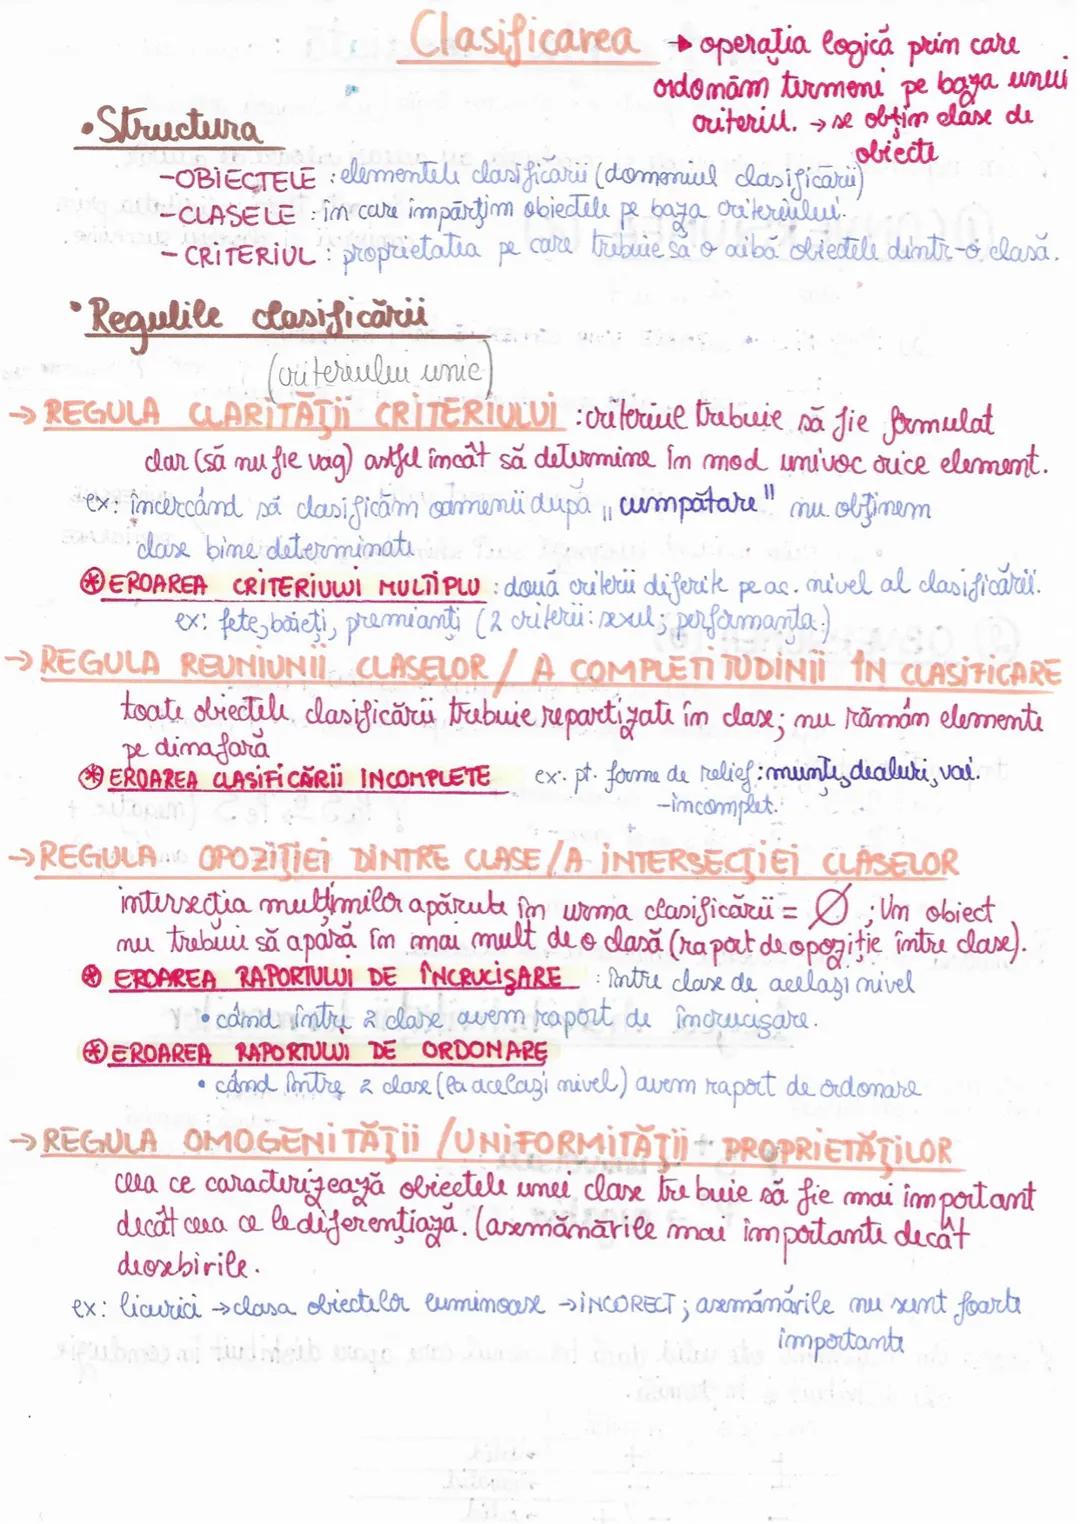 Clasificarea → operația logică prin care
ordonăm termeni pe baza unui
criteriu. → se obțin clase de
obiecte
• Structura
- OBIECTELE : elementele clasificării (domeniul clasificării)
- CLASELE : în care împărțim obiectele pe baza criteriului.
- CRITERIUL : proprietatea pe care trebuie să o aibă obiectele dintr-o clasă.
• Regulile clasificării
(criteriului unic)
→ REGULA CLARITĂȚII CRITERIULUI : criteriul trebuie să fie formulat
clar (să nu fie vag) astfel încât să determine în mod univoc orice element.
ex: încercând să clasificăm oamenii după „cumpătare" nu obținem
clase bine determinate
⊛ EROAREA CRITERIULUI MULTIPLU : două criterii diferite pe ac. nivel al clasificării.
ex: fete, băieți, premianți (2 criterii: sexul; performanța.)
→ REGULA REUNIUNII CLASELOR / A COMPLETITUDINII ÎN CLASIFICARE
toate obiectele clasificării trebuie repartizate în clase; nu rămân elemente
pe dinafară
⊛ EROAREA CLASIFICĂRII INCOMPLETE ex. pt. forme de relief: munți, dealuri, văi.
- incomplet.
→ REGULA OPOZIȚIEI DINTRE CLASE / A INTERSECȚIEI CLASELOR
intersecția mulțimilor apărute în urma clasificării = Ø ; Un obiect
nu trebuie să apară în mai mult de o clasă (raport de opoziție între clase).
⊛ EROAREA RAPORTULUI DE ÎNCRUCIȘARE : între clase de același nivel
• când între 2 clase avem raport de încrucișare.
⊛ EROAREA RAPORTULUI DE ORDONARE
• când între 2 clase (la același nivel) avem raport de ordonare
→ REGULA OMOGENITĂȚII / UNIFORMITĂȚII PROPRIETĂȚILOR
ceea ce caracterizează obiectele unei clase trebuie să fie mai important
decât ceea ce le diferențiază. (asemănările mai importante decât
deosebirile.
ex: licurici → clasa obiectelor luminoase → INCORECT ; asemănările nu sunt foarte
importante